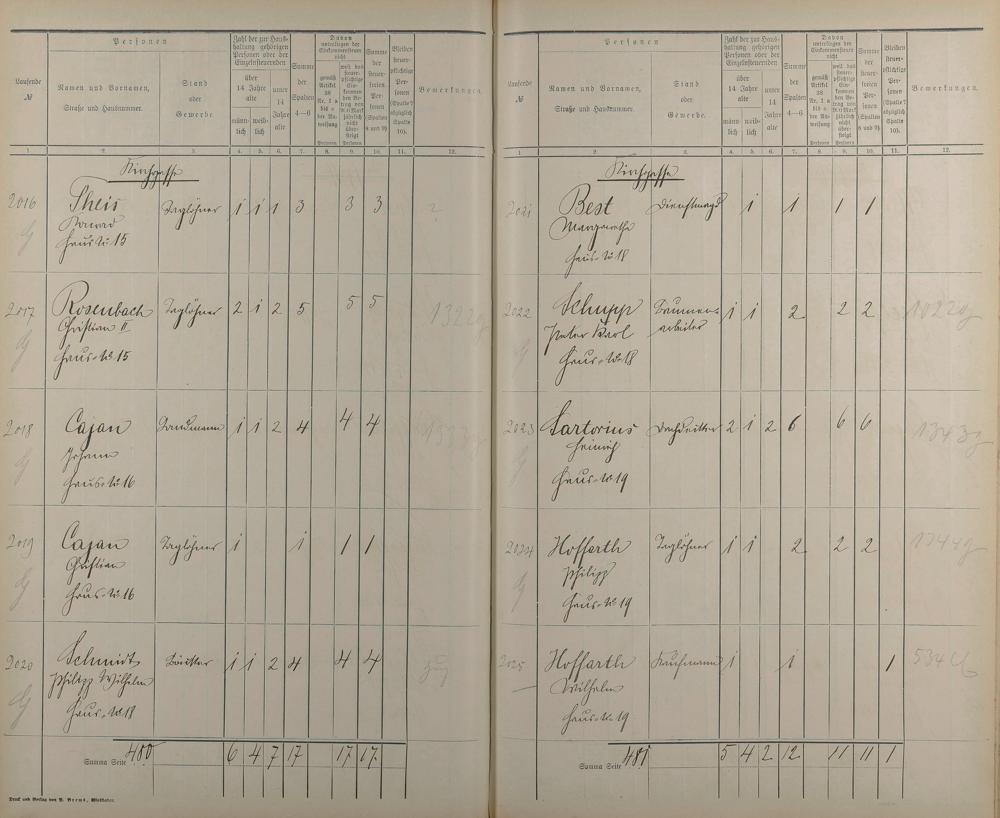 Laufende
№
Personen
Namen und Vornamen,
Straße und Hausnummer.
Stand
oder
Gewerbe.
Zahl der zur Haus-
haltung gehörigen
Personen oder der
Einzelnsteuernden
über
14 Jahre
alte
männ-
lich
weib-
lich
unter
14
Jahre
alte
Summe
der
Spalten
4—6
Davon
unterliegen der
Einkommensteuer
nicht
gemäß
Artikel
28
weil das
steuer-
pflichtige
Ein-
kommen
den Be-
trag von
900 Mark
jährlich
nicht
über-
steigt
Personen
Personen
Summe
der
steuer-
freien
Per-
sonen
(Spalten
8 und 9)
Bleiben
steuer-
pflichtige
Per-
sonen
(Spalte 7
abzüglich
Spalte
10).
Bemerkungen.
1. 2. 3. 4. 5. 6. 7. 8. 9. 10. 11. 12.
Kirchgasse
2016 Theis Taglöhner 1 1 1 3 3 3 ?
Konrad
Haus-№ 15
2017 Rosenbach Taglöhner 2 1 2 5 5 5 1322g
Christian II
Haus-№ 15
2018 Cajan 1 1 2 4 4 4
Johann
Haus-№ 16
2019 Cajan Taglöhner 1 1 1 1
Christian
Haus-№ 16
2020 Schmidt 1 1 2 4 4 4
Philipp Wilhelm
Haus-№ 18
Summa Seite 480 6 4 7 17 17 17
Druck und Verlag von P. Brems, Wiesbaden.
Laufende
№
Personen
Namen und Vornamen,
Straße und Hausnummer.
Stand
oder
Gewerbe.
Zahl der zur Haus-
haltung gehörigen
Personen oder der
Einzelnsteuernden
über
14 Jahre
alte
männ-
lich
weib-
lich
unter
14
Jahre
alte
Summe
der
Spalten
4—6
Davon
unterliegen der
Einkommensteuer
nicht
gemäß
Artikel
28
weil das
steuer-
pflichtige
Ein-
kommen
den Be-
trag von
900 Mark
jährlich
nicht
über-
steigt
Personen
Personen
Summe
der
steuer-
freien
Per-
sonen
(Spalten
8 und 9)
Bleiben
steuer-
pflichtige
Per-
sonen
(Spalte 7
abzüglich
Spalte
10).
Bemerkungen.
1. 2. 3. 4. 5. 6. 7. 8. 9. 10. 11. 12.
Kirchgasse
2021 Best Dienstmagd 1 1 1 1
Margarethe
Haus-№ 18
2022 Schupp 1 1 2 2 2
Peter Karl arbeiter
Haus-№ 18
2023 Sartorius Dachdecker 2 1 2 6 6 6 1343g
Heinrich
Haus-№ 19
2024 Hoffarth Taglöhner 1 1 2 2 2 1344g
Philipp
Haus-№ 19
2025 Hoffarth Kaufmann 1 1 1
Wilhelm
Haus-№ 19
Summa Seite 481 5 4 2 12 11 11 1